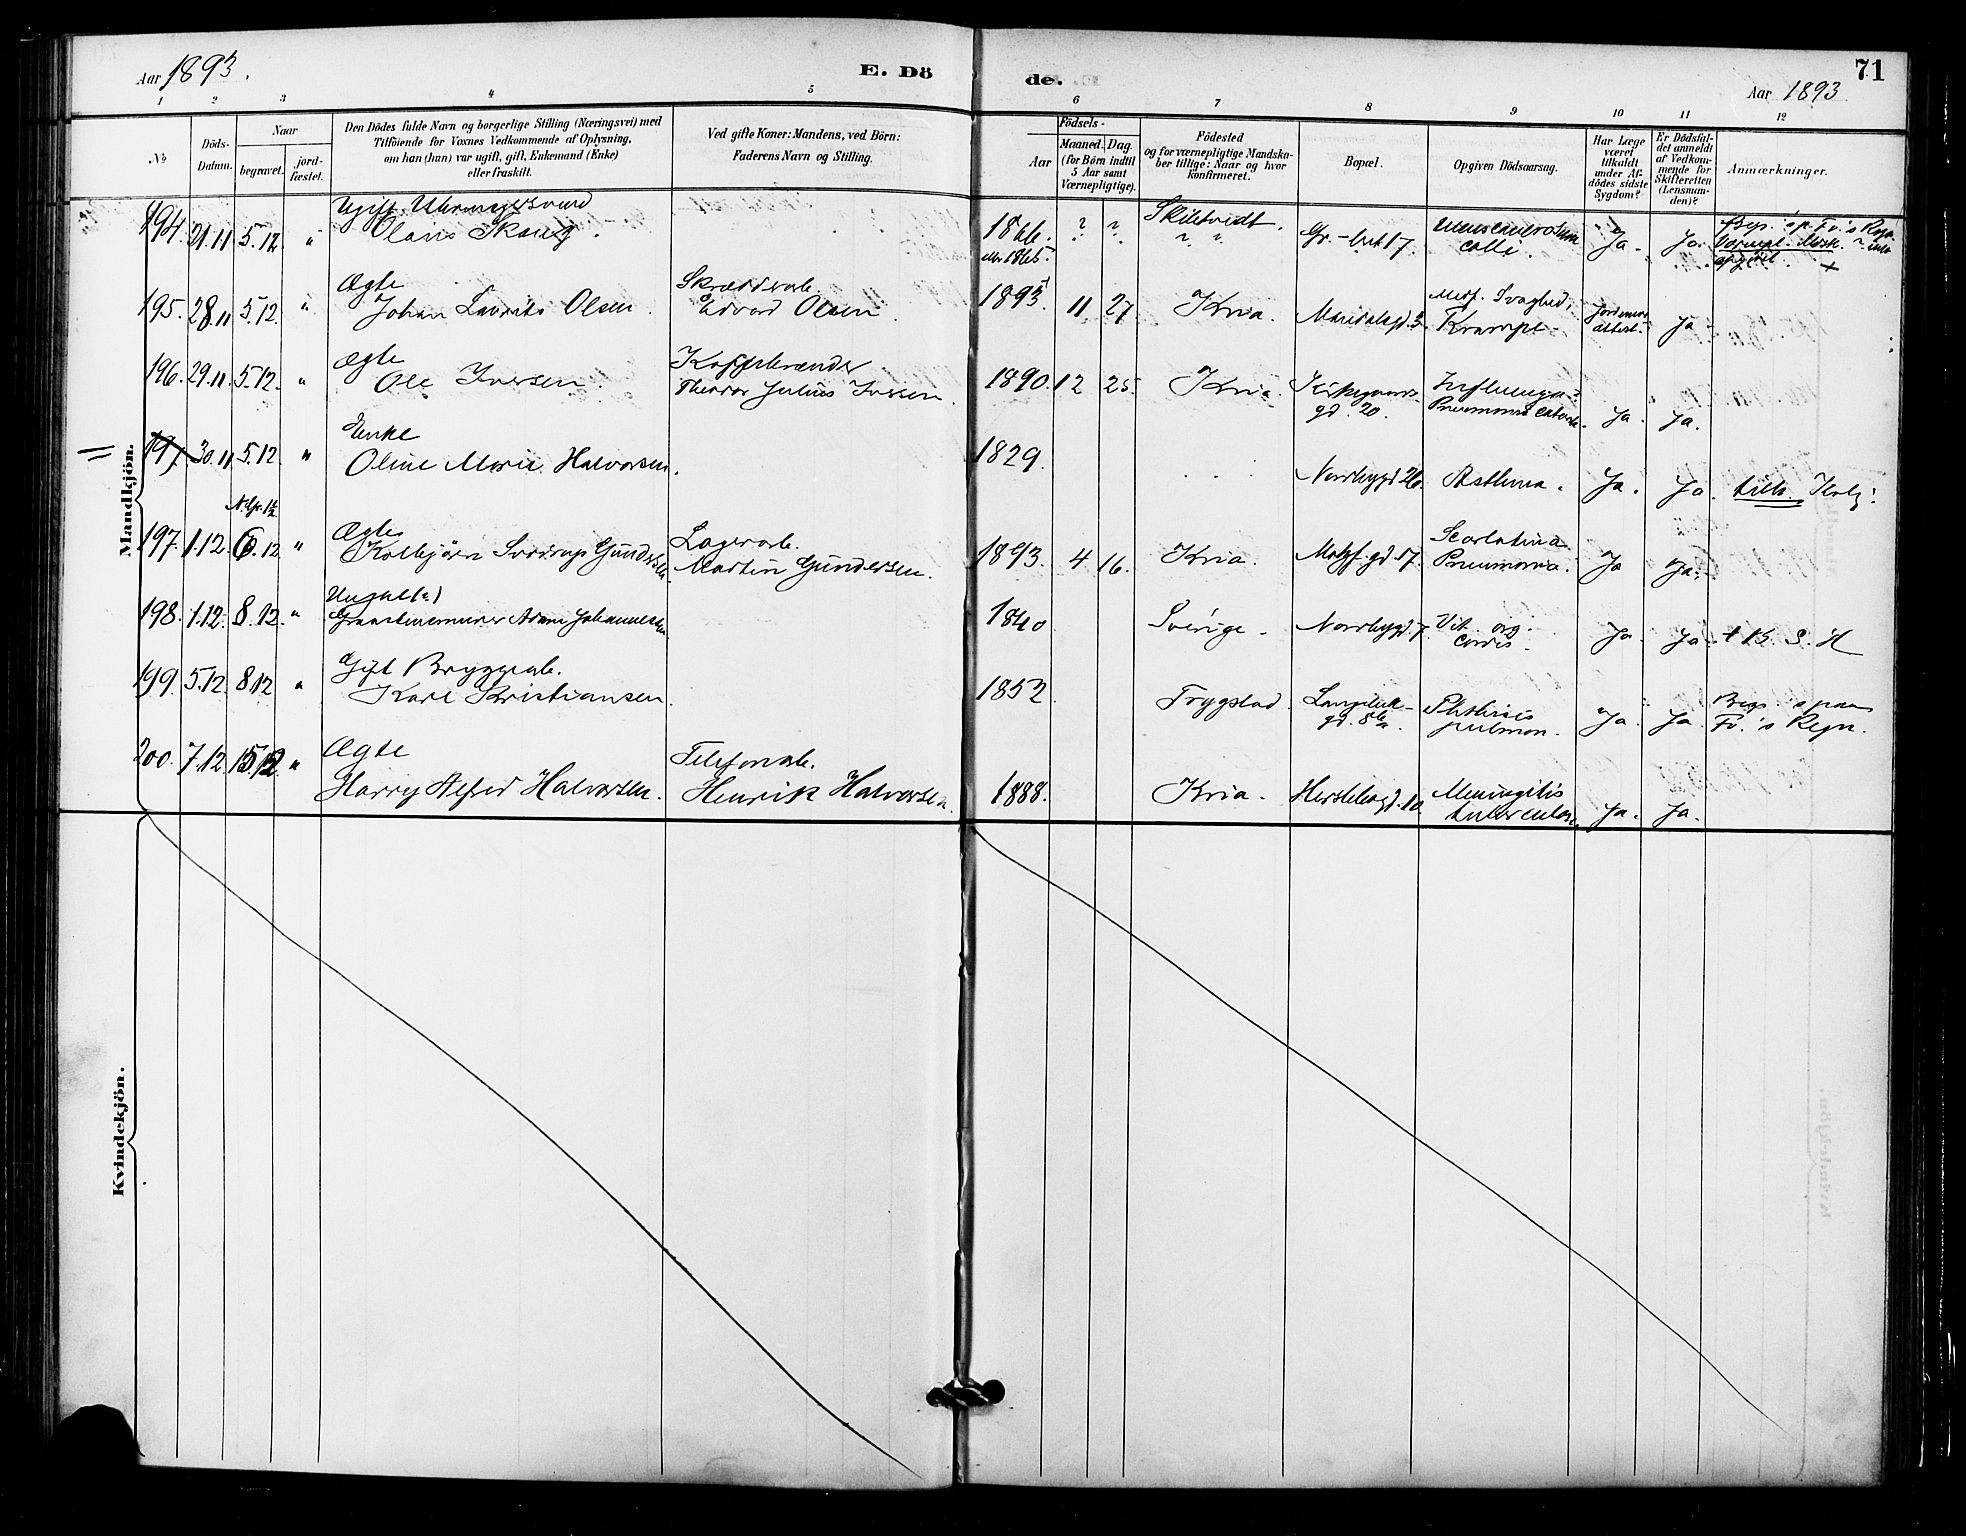 Aar 1893.
E. Dö
de.
71
Aar 1893
1 2 3 4 5 6 7 8 9 10 11 12
№
Döds-
Datum.
Naar
begravet.
jord-
fæstet.
Den Dödes fulde Navn og borgerlige Stilling (Næringsvei) med
Tilföiende for Voxnes Vedkommende af Oplysning,
om han (hun) var ugift, gift, Enkemand (Enke)
eller fraskilt.
Ved gifte Koner: Mandens, ved Börn:
Faderens Navn og Stilling.
Födsels-
Aar
Maaned.
Dag.
(for Börn indtil
5 Aar samt
Værnepligtige).
Födested
og for værnepligtige Mandska-
ber tillige: Naar og hvor
konfirmeret.
Bopæl.
Opgiven Dödsaarsag.
Har Læge
været
tilkaldt
under Af-
dödes sidste
Sygdom?
Er Dödsfal-
det anmeldt
af Vedkom-
mende for
Skifteretten
(Lensman-
den)?
Anmærkninger.
Mandkjön.
194. 21.11 5.12. "
Ugift
Olaus Skaug.
1866. ? ?
Skibtvedt.
? ?
Ja. Ja.
195. 28.11 5.12. "
Ægte
Johan Laurits Olsen.
Skrædderarb.
Edvard Olsen.
1893 11 27
Kria.
Maridalsgd. 3
Medf. Svaghed,
Krampe
Jordemor
attest.
Ja
196. 29.11. 5.12. "
Ægte
Ole Iversen.
Kaffebrænder
Theodor Julius Iversen.
1890. 12 25.
Kria.
gd. 20.
Influenza
Ja. Ja.
197 30.11 5.12. "
Enke
Oline Marie Halvorsen.
1829.
Norrbygd 26.
Asthma.
Ja. Ja.
197. 1.12. 6.12 "
Ægte
Kolbjörn Sverdrup Gundersen
Lagerarb.
Martin Gundersen.
1893. 4 16.
Kria.
Motzf. gd. 17.
Scarlatina
Pneumonia.
Ja Ja.
198. 1.12. 8.12. "
Adam Johannesen
1840
Sverige.
Norrbygd. 7.
Vit. org.
Cordis.
Ja. Ja.
199. 5.12. 8.12 "
Gift Bryggearb.
Karl Kristiansen.
1852
Trygstad.
Phthisis
pulmon.
Ja. Ja.
Fv.'s Regn.
200. 7.12 15.12 "
Ægte
Harry Alfred Halvorsen.
Telefonarb.
Henrik Halvorsen.
1888.
Kria.
Herslebsgd. 10.
Meningitis
tuberculosa.
Ja. Ja.
Kvindekjön.